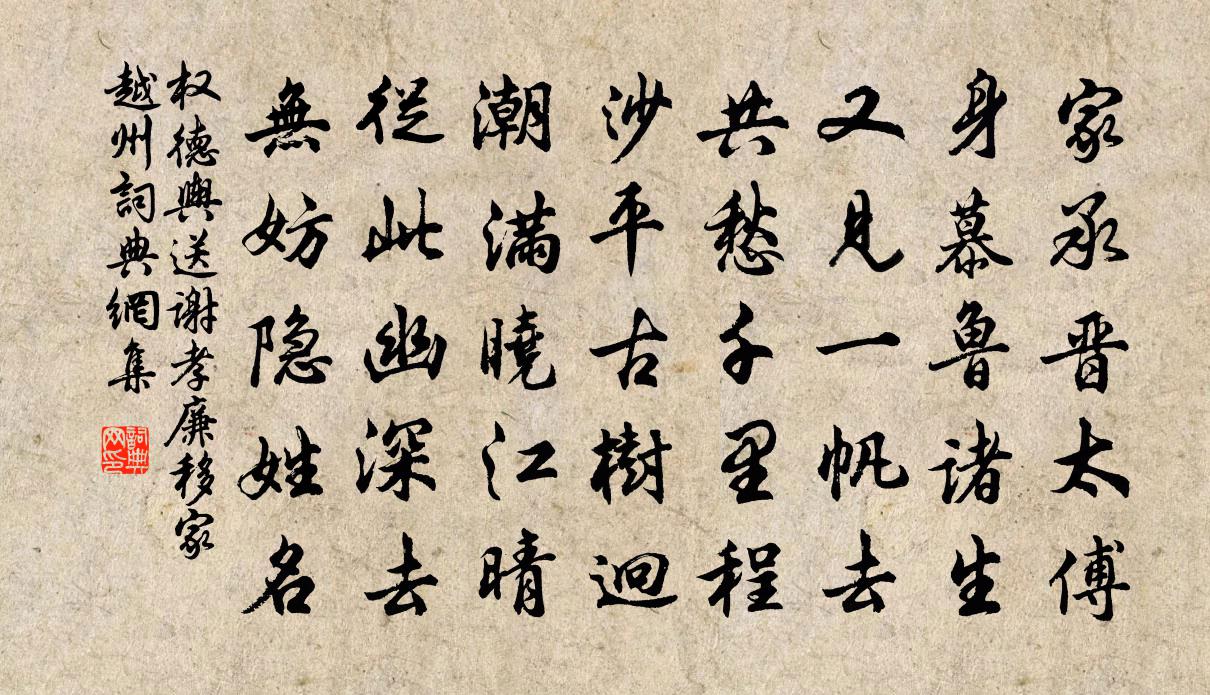 家承晋太傅
身慕鲁诸生
又见一帆去
共愁千里程
沙平古樹迥
潮满曉江晴
從此幽深去
無妨隐姓名
权德輿送谢孝廉移家
越州詞典網集
詞典网印